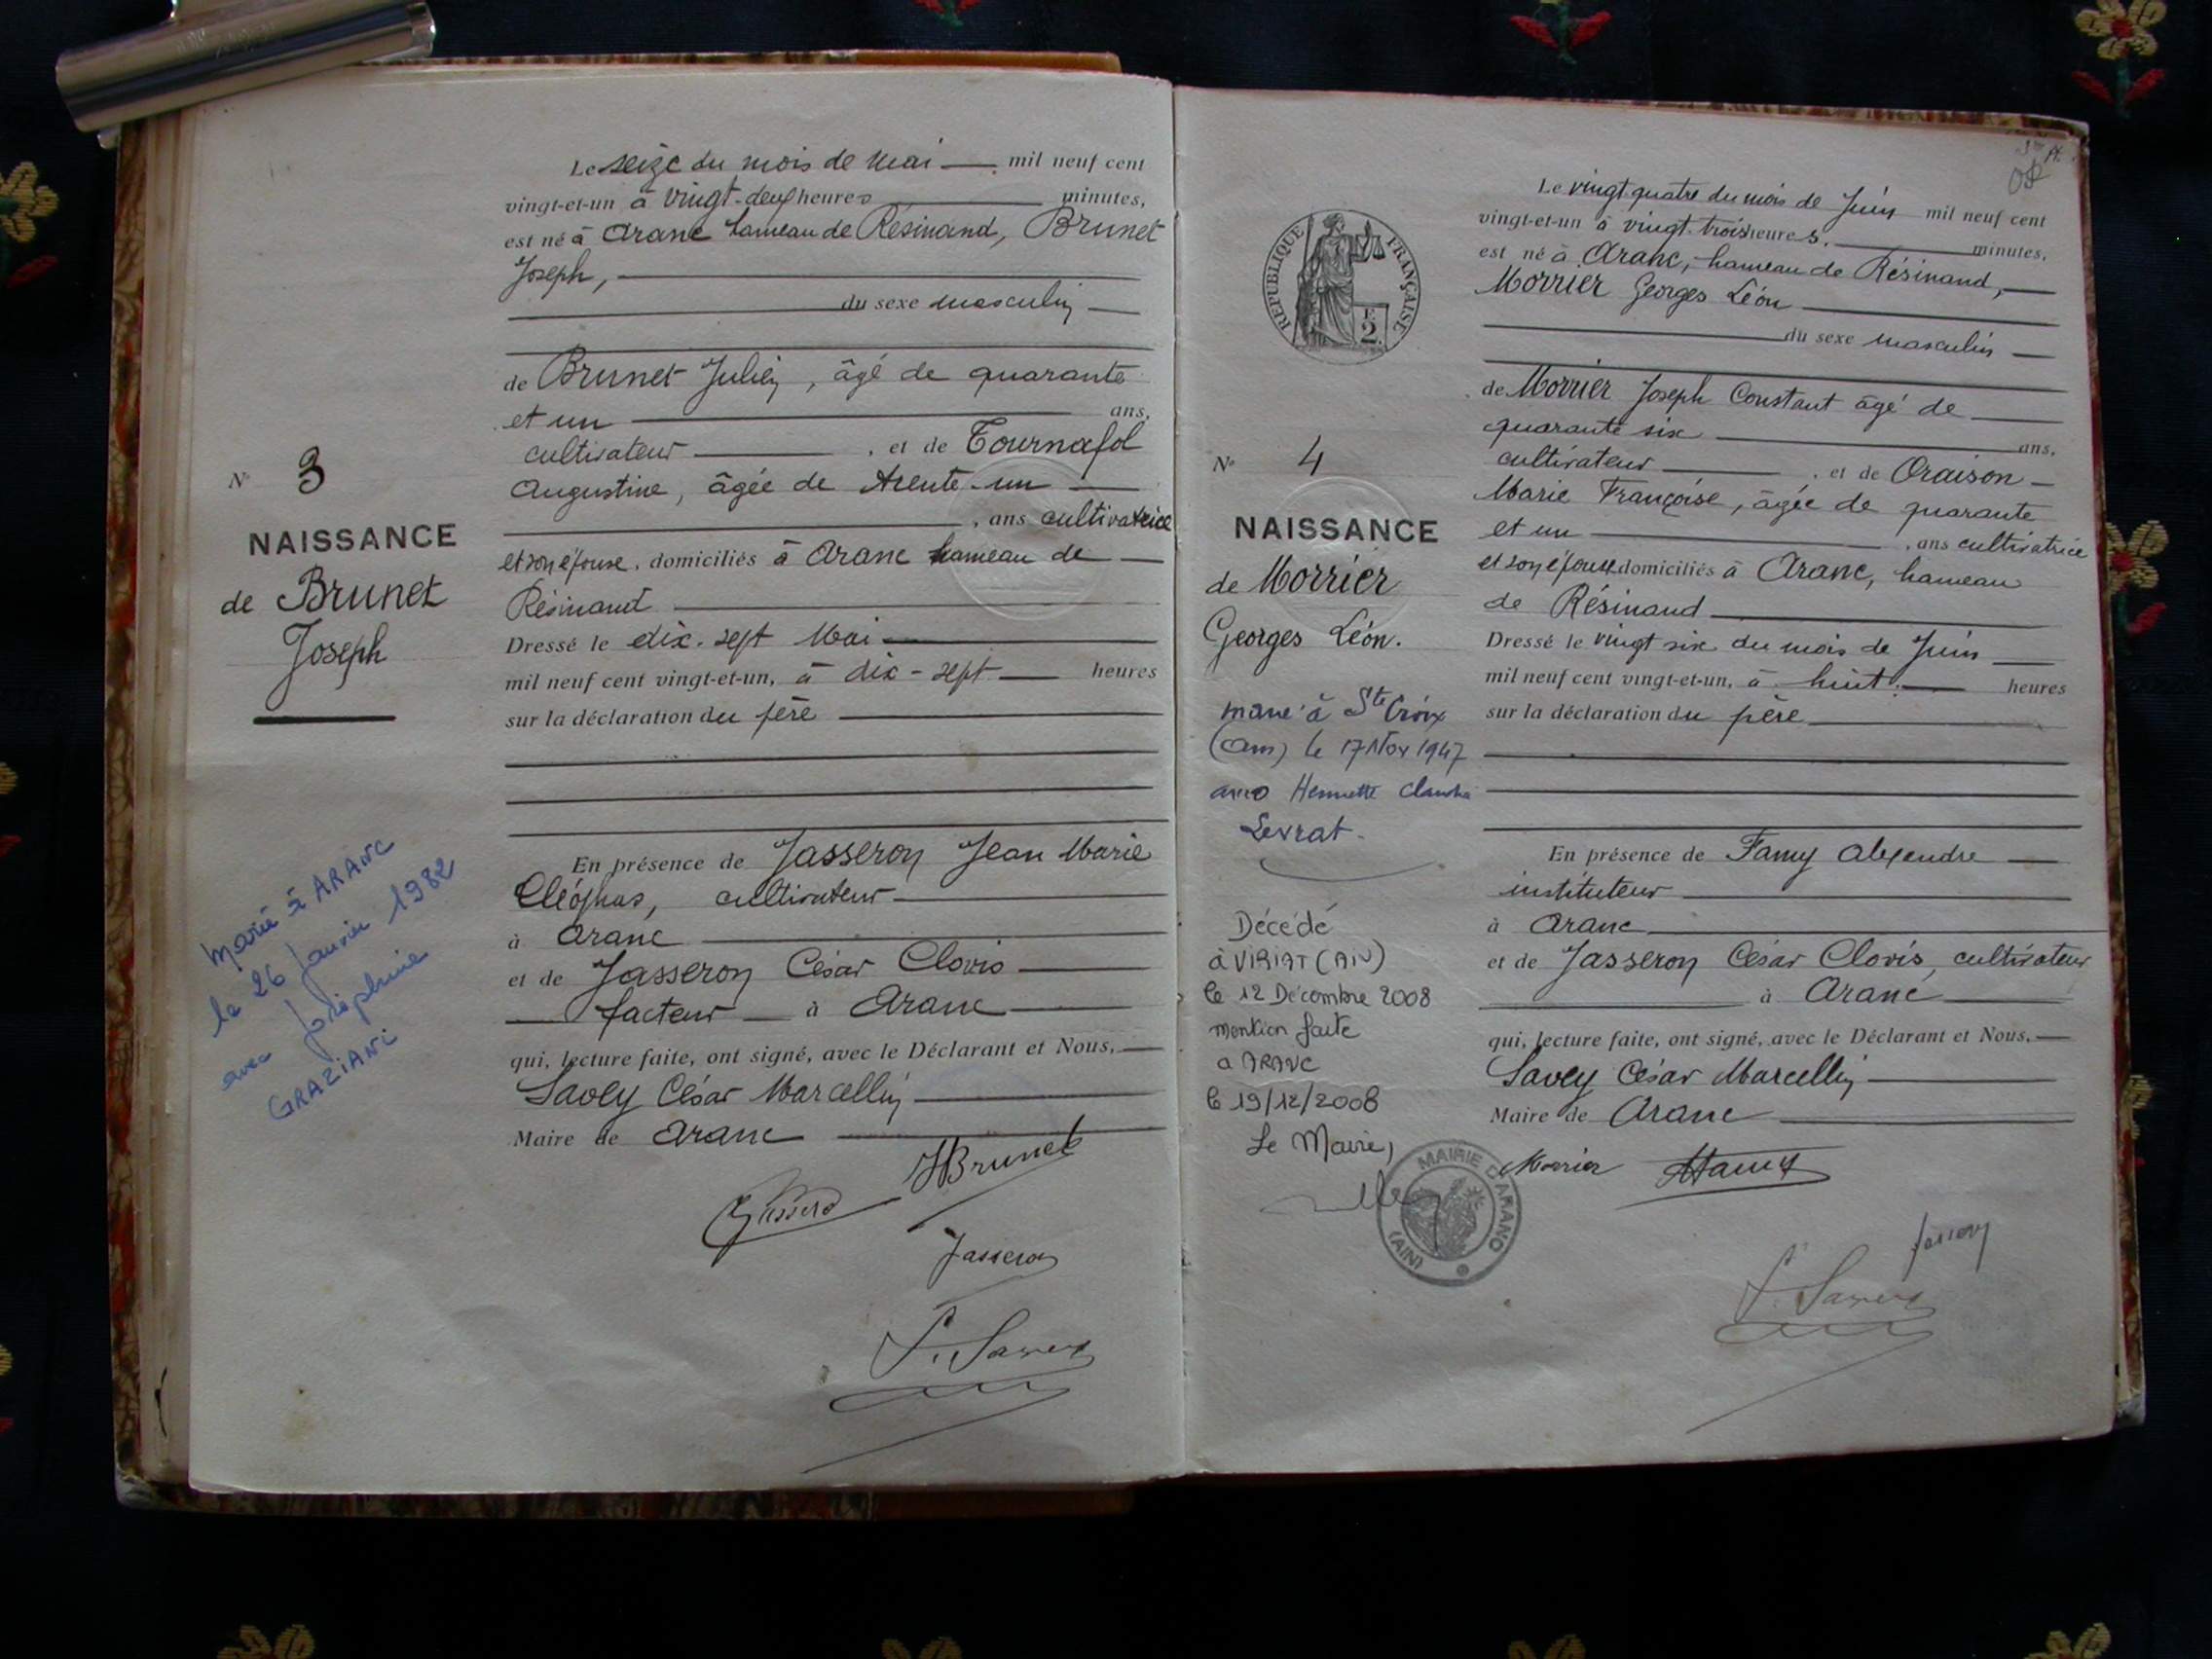 N° 3
NAISSANCE
de Brunet
Joseph
marié à ARANC
le 26 janvier 1982
avec joséphine
GRAZIANI
Le seize du mois de Mai mil neuf cent
vingt-et-un à vingt-deux heures minutes,
est né à Aranc hameau de Résinand, Brunet
Joseph,
du sexe masculin
de Brunet Julien, âgé de quarante
et un ans,
cultivateur, et de Tournafol
Augustine, âgée de trente-un
, ans cultivatrice
et son épouse, domiciliés à Aranc hameau de
Résinand
Dressé le dix-sept Mai
mil neuf cent vingt-et-un, à dix-sept heures
sur la déclaration du père
En présence de Jasseron Jean Marie
Cléophas, cultivateur
à Aranc
et de Jasseron César Clovis
facteur à Aranc
qui, lecture faite, ont signé, avec le Déclarant et Nous,
Savey César Marcellin
Maire de Aranc
JBrunet
Jasseron
Savey
RÉPUBLIQUE FRANÇAISE
F.
2.
N° 4
NAISSANCE
de Morrier
Georges Léon.
marié à Ste Croix
(Ain) le 17 Nov 1947
avec Henriette Claudia
Levrat.
Décédé
à VIRIAT (AIN)
le 12 Décembre 2008
mention faite
a ARANC
le 19/12/2008
Le Maire,
MAIRIE D'ARANC
(AIN)
Le vingt-quatre du mois de Juin mil neuf cent
vingt-et-un à vingt-trois heures. minutes,
est né à Aranc, hameau de Résinand,
Morrier Georges Léon
du sexe masculin
de Morrier Joseph Constant âgé de
quarante six ans,
cultivateur, et de Oraison
Marie Françoise, âgée de quarante
et un, ans cultivatrice
et son épouse domiciliés à Aranc, hameau
de Résinand
Dressé le vingt six du mois de Juin
mil neuf cent vingt-et-un, à huit heures
sur la déclaration du père
En présence de Famy Alexandre
instituteur
à Aranc
et de Jasseron César Clovis, cultivateur
à Aranc
qui, lecture faite, ont signé, avec le Déclarant et Nous,
Savey César Marcellin
Maire de Aranc
Morrier Famy
Jasseron
Savey